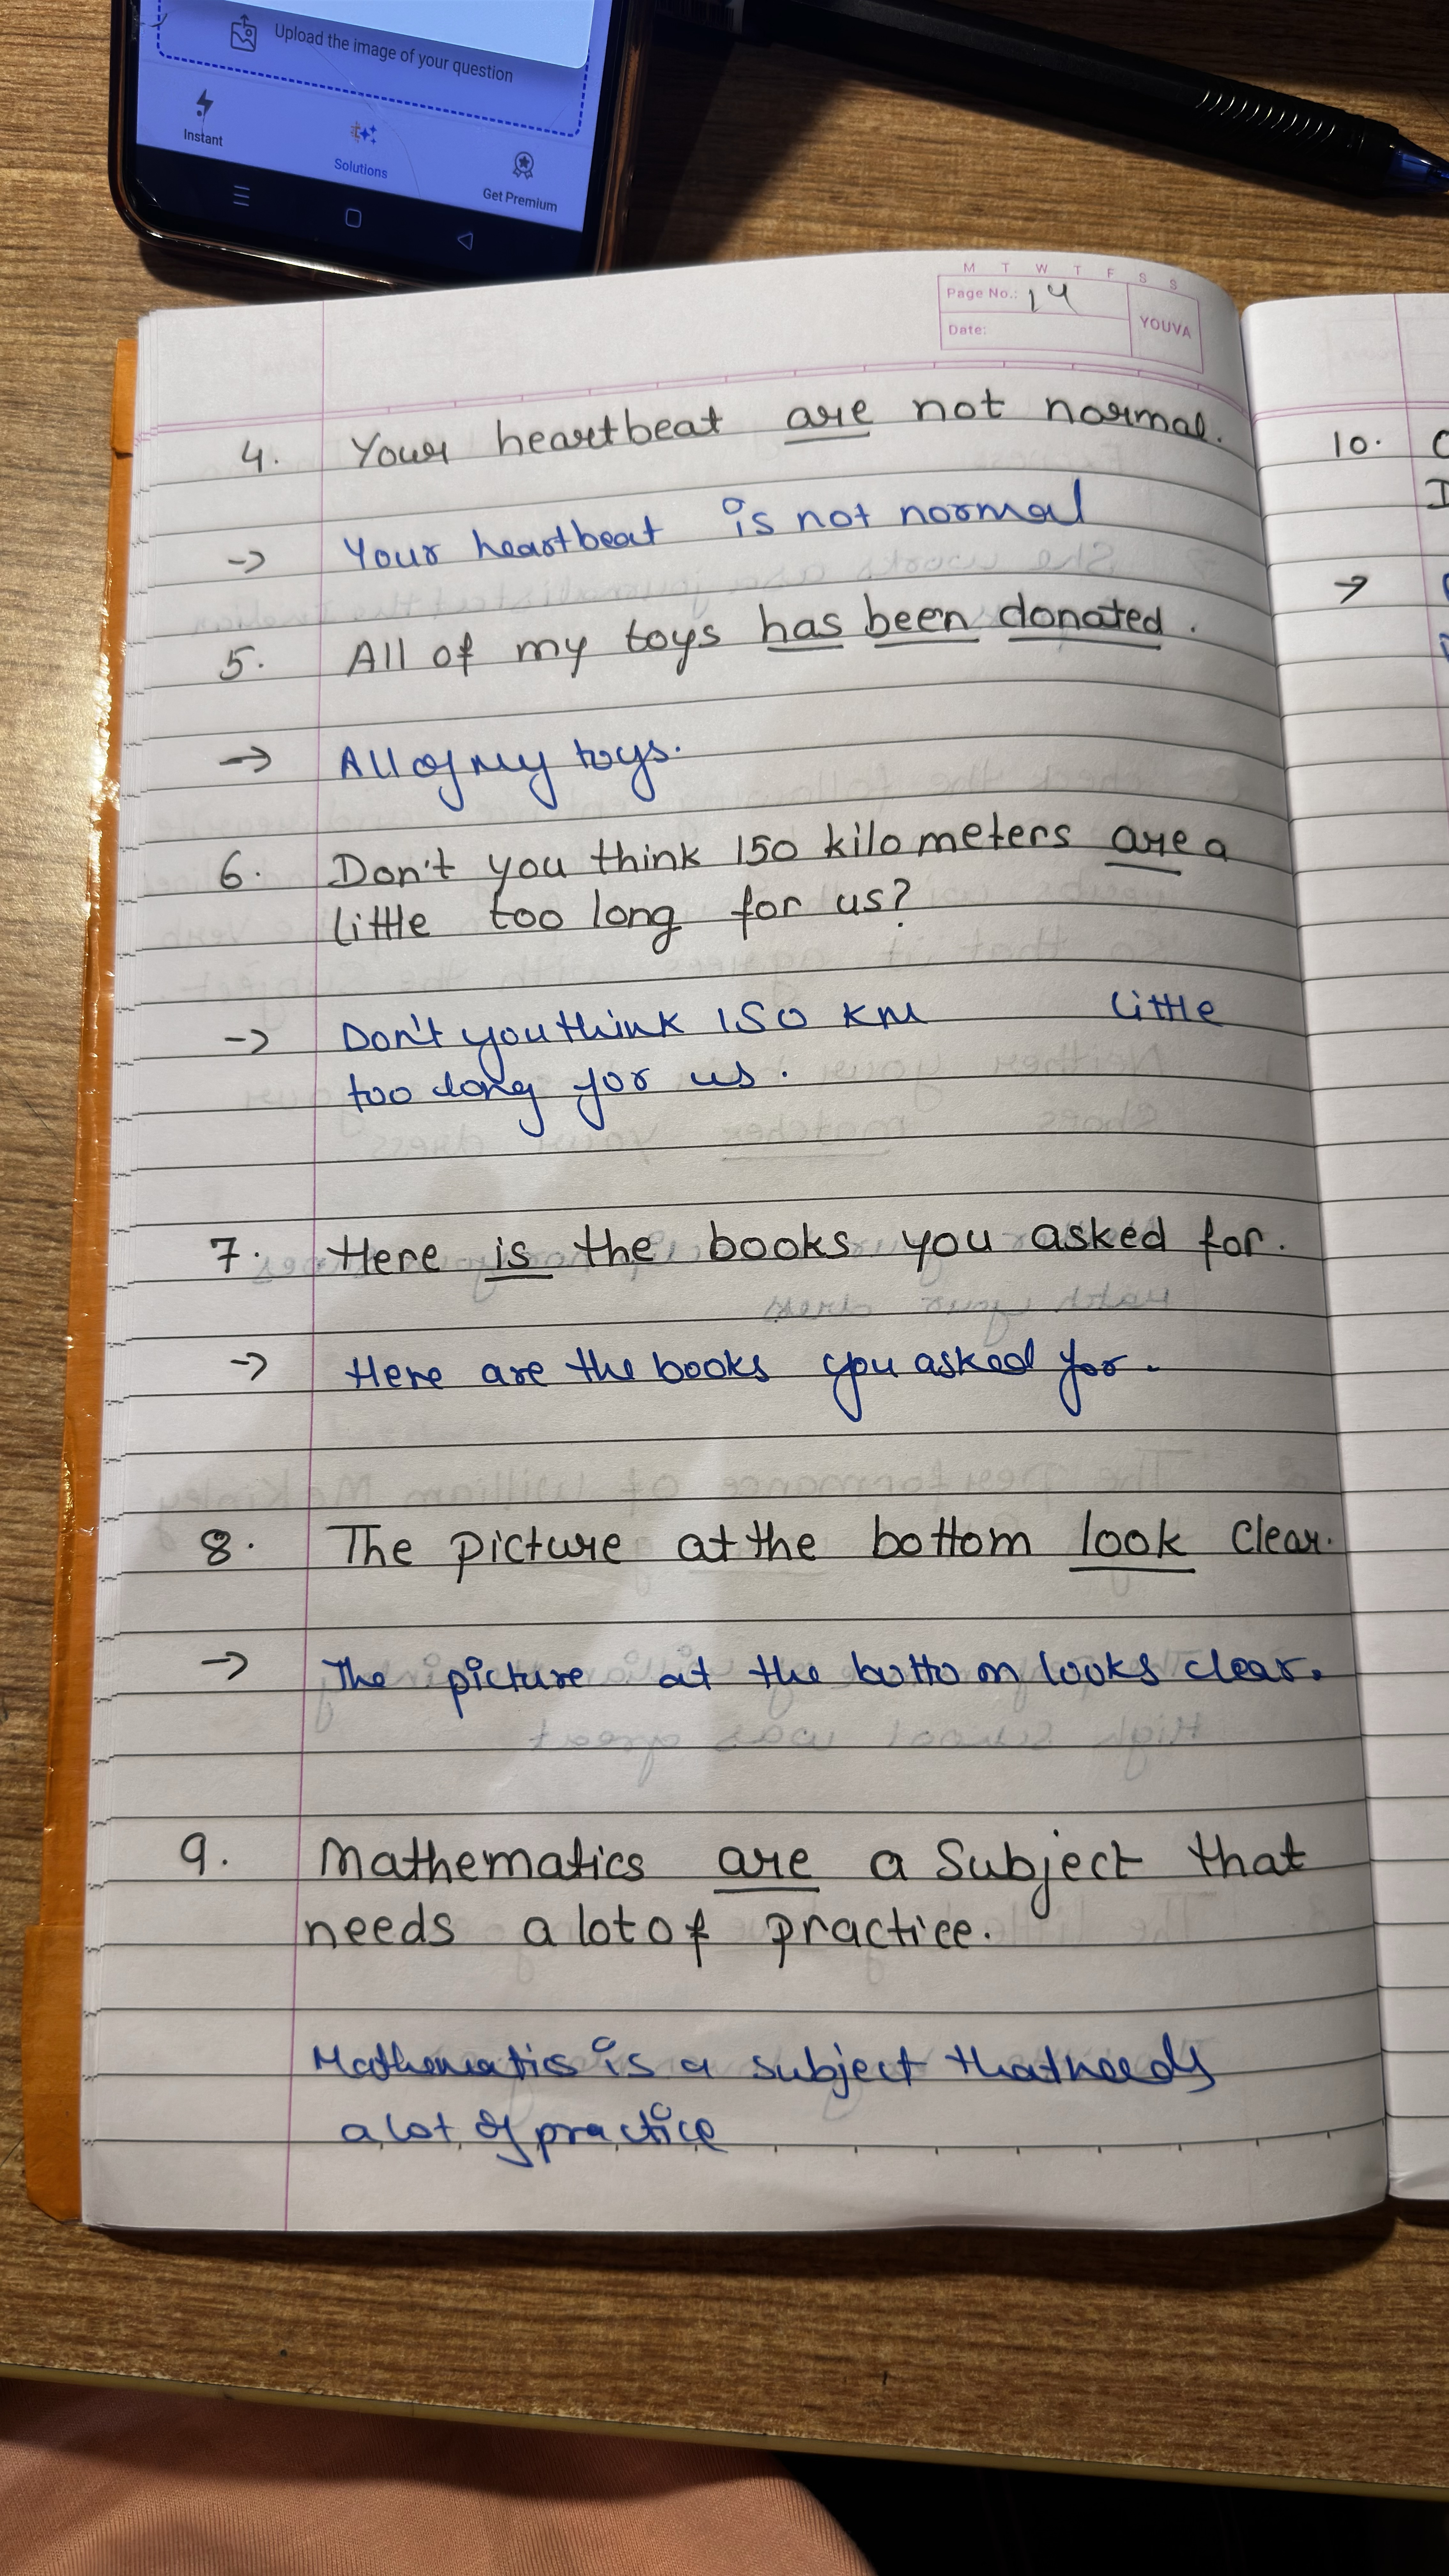 Upload the image of your question
Instant
Solutions
Get Premium
M T W T F S S
Page No.: 14
Date:
YOUVA
4. Your heartbeat are not normal.
-> Your heartbeat is not normal
5. All of my toys has been donated.
-> All of my toys.
6. Don't you think 150 kilometers are a
little too long for us?
-> Don't you think 150 KM little
too long for us.
7. Here is the books you asked for.
-> Here are the books you asked for.
8. The picture at the bottom look clear.
-> The picture at the bottom looks clear.
9. Mathematics are a Subject that
needs a lot of practice.
Mathematics is a subject that needs
a lot of practice
10.
->